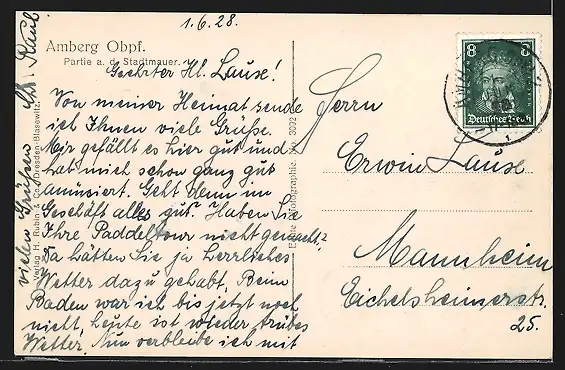 1.6.28.
Amberg Obpf.
Partie a. d. Stadtmauer.
Geehrter Hl. Lause!
Von meiner Heimat sende
ich Ihnen viele Grüße.
Mir gefällt es hier gut und
hat mich schon ganz gut
amüsiert. Geht denn im
Geschäft alles gut. Haben Sie
Ihre Paddeltour nicht gemacht?
Da hätten Sie ja herrliches
Wetter dazu gehabt. Beim
Baden war ich bis jetzt noch
nicht, heute ist wieder trübes
Wetter. Nun verbleibe ich mit
vielen Grüßen
Verlag H. Rubin & Co., Dresden-Blasewitz.
Echte Photographie. Nr. 3022
8
Deutsches Reich
Herrn
Erwin Lause
Mannheim
Eichelsheimerstr.
25.